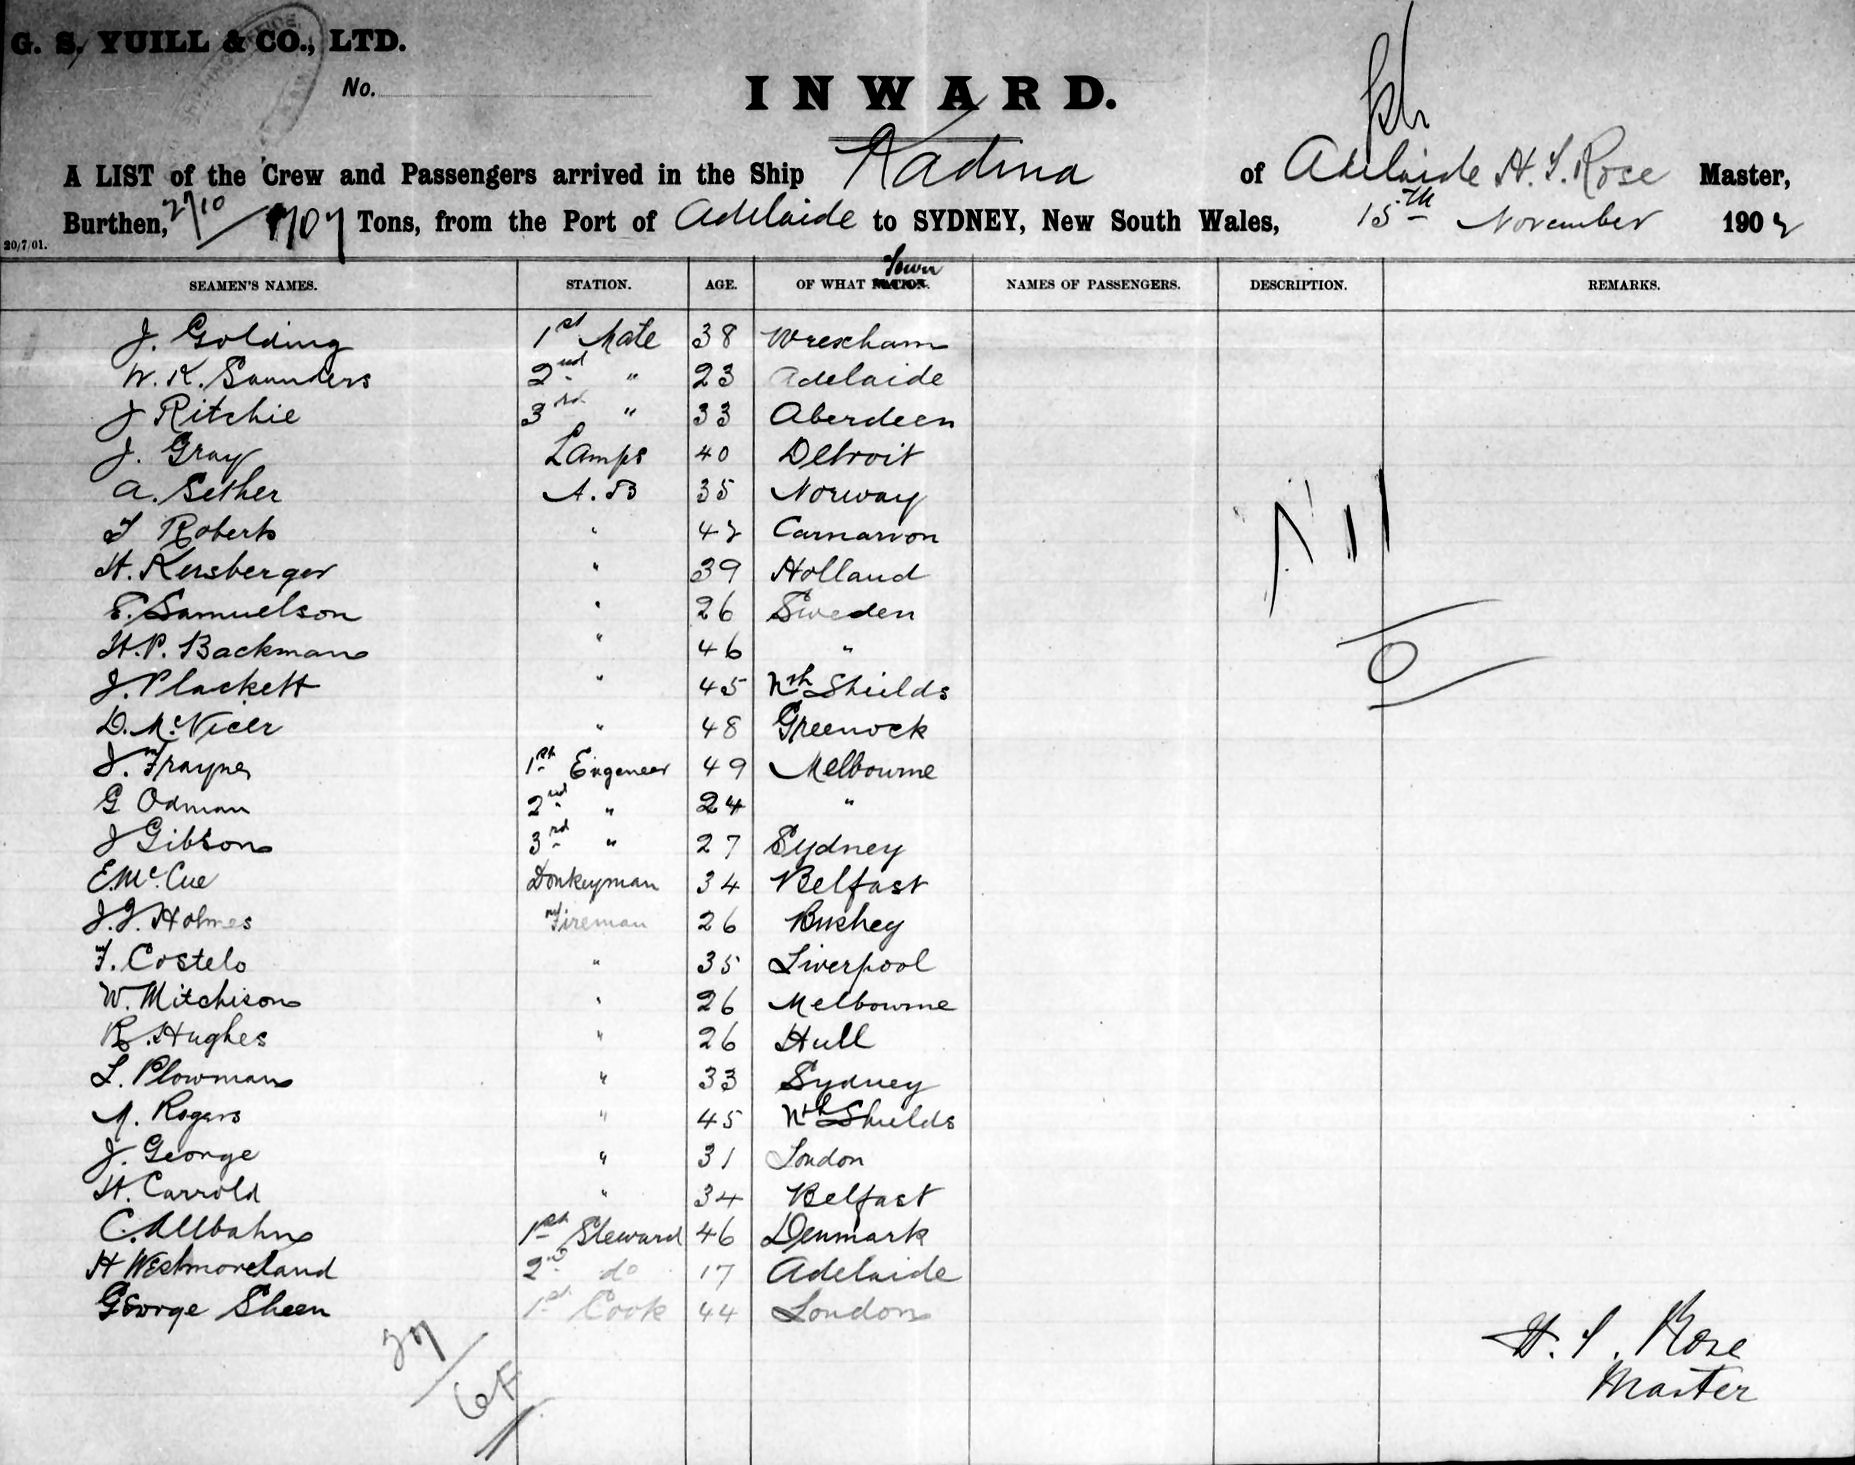 G. S. YUILL & CO., LTD.
No.
INWARD.
A LIST of the Crew and Passengers arrived in the Ship Kadina of Adelaide H. S. Rose Master,
Burthen, Tons, from the Port of Adelaide to SYDNEY, New South Wales, 15th November 1902
20/7/01.
SEAMEN'S NAMES. STATION. AGE. OF WHAT NATION. Town NAMES OF PASSENGERS. DESCRIPTION. REMARKS.
J. Golding 1st Mate 38 Wrexham
W. K. Saunders 2nd " 23 Adelaide
J Ritchie 3rd " 33 Aberdeen
J. Gray Lamps 40 Detroit
A. Sether A.B 35 Norway
T Roberts " 42 Carnarvon
H. Kersberger " 39 Holland
E. Samuelson " 26 Sweden
H.P. Backman " 46 "
J. Plackett " 45 Nth Shields
D. McVicer " 48 Greenock
J. Frayne 1st Engeneer 49 Melbourne
G Odman 2nd " 24 "
J Gibson 3rd " 27 Sydney
E. McCue Donkeyman 34 Belfast
J. J. Holmes Fireman 26 Bushey
F. Costelo " 35 Liverpool
W. Mitchison " 26 Melbourne
R. Hughes " 26 Hull
L. Plowman " 33 Sydney
M. Rogers " 45 Nth Shields
J. George " 31 London
H. Carrold " 34 Belfast
C. Allbahn 1st Steward 46 Denmark
H Westmoreland 2nd do 17 Adelaide
George Sheen 1st Cook 44 London
Nil
27
H. S. Rose
Master